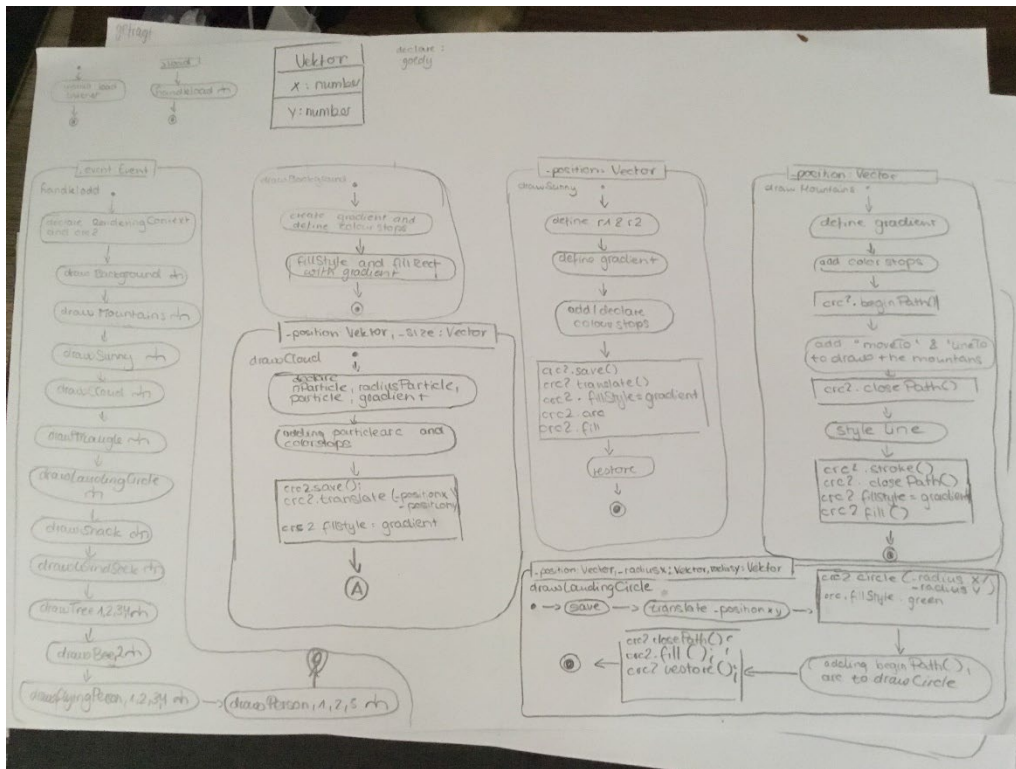 load
handleload
Vektor
x : number
y : number
declare :
goedy
-event Event
handleload
declare RenderingContext
and crc2
draw Background
draw Mountains
draw Sunny
draw Cloud
draw Triangle
draw Landing Circle
draw Shack
draw WindSock
draw Tree 1,2,3,4
draw Bee, 2
draw Flying Person, 1,2,3,4
draw Person, 1, 2, 5
draw Background
create gradient and
define colour stops
fillStyle and fillRect
with gradient
-position: Vektor, -size: Vector
drawCloud
declare
nParticle, radiusParticle,
particle, gradient
adding particle arc and
colorstops
crc2.save();
crc2.translate (-positionx
-positiony
crc2 fillstyle = gradient
A
-position: Vector
draw Sunny
define r1 & r2
define gradient
add/declare
colour stops
crc2.save()
crc2 translate()
crc2. fillStyle=gradient
crc2 arc
crc2. fill
restore
-position: Vector
draw Mountains
define gradient
add color stops
crc2. beginPath()
add "moveTo" & "lineTo
to draw the mountains
crc2. close Path()
style line
crc2. stroke()
crc2. closePath()
crc2 fillstyle = gradient
crc2 fill ()
-position: Vector, -radiusx: Vektor, : Vektor
drawLandingCircle
save
translate -position xy
crc2 circle (-radius x/
-radius y)
crc. fillStyle green
adding beginPath(),
arc to drawCircle
crc2 closePath();
crc2. fill ();
crc2 restore();